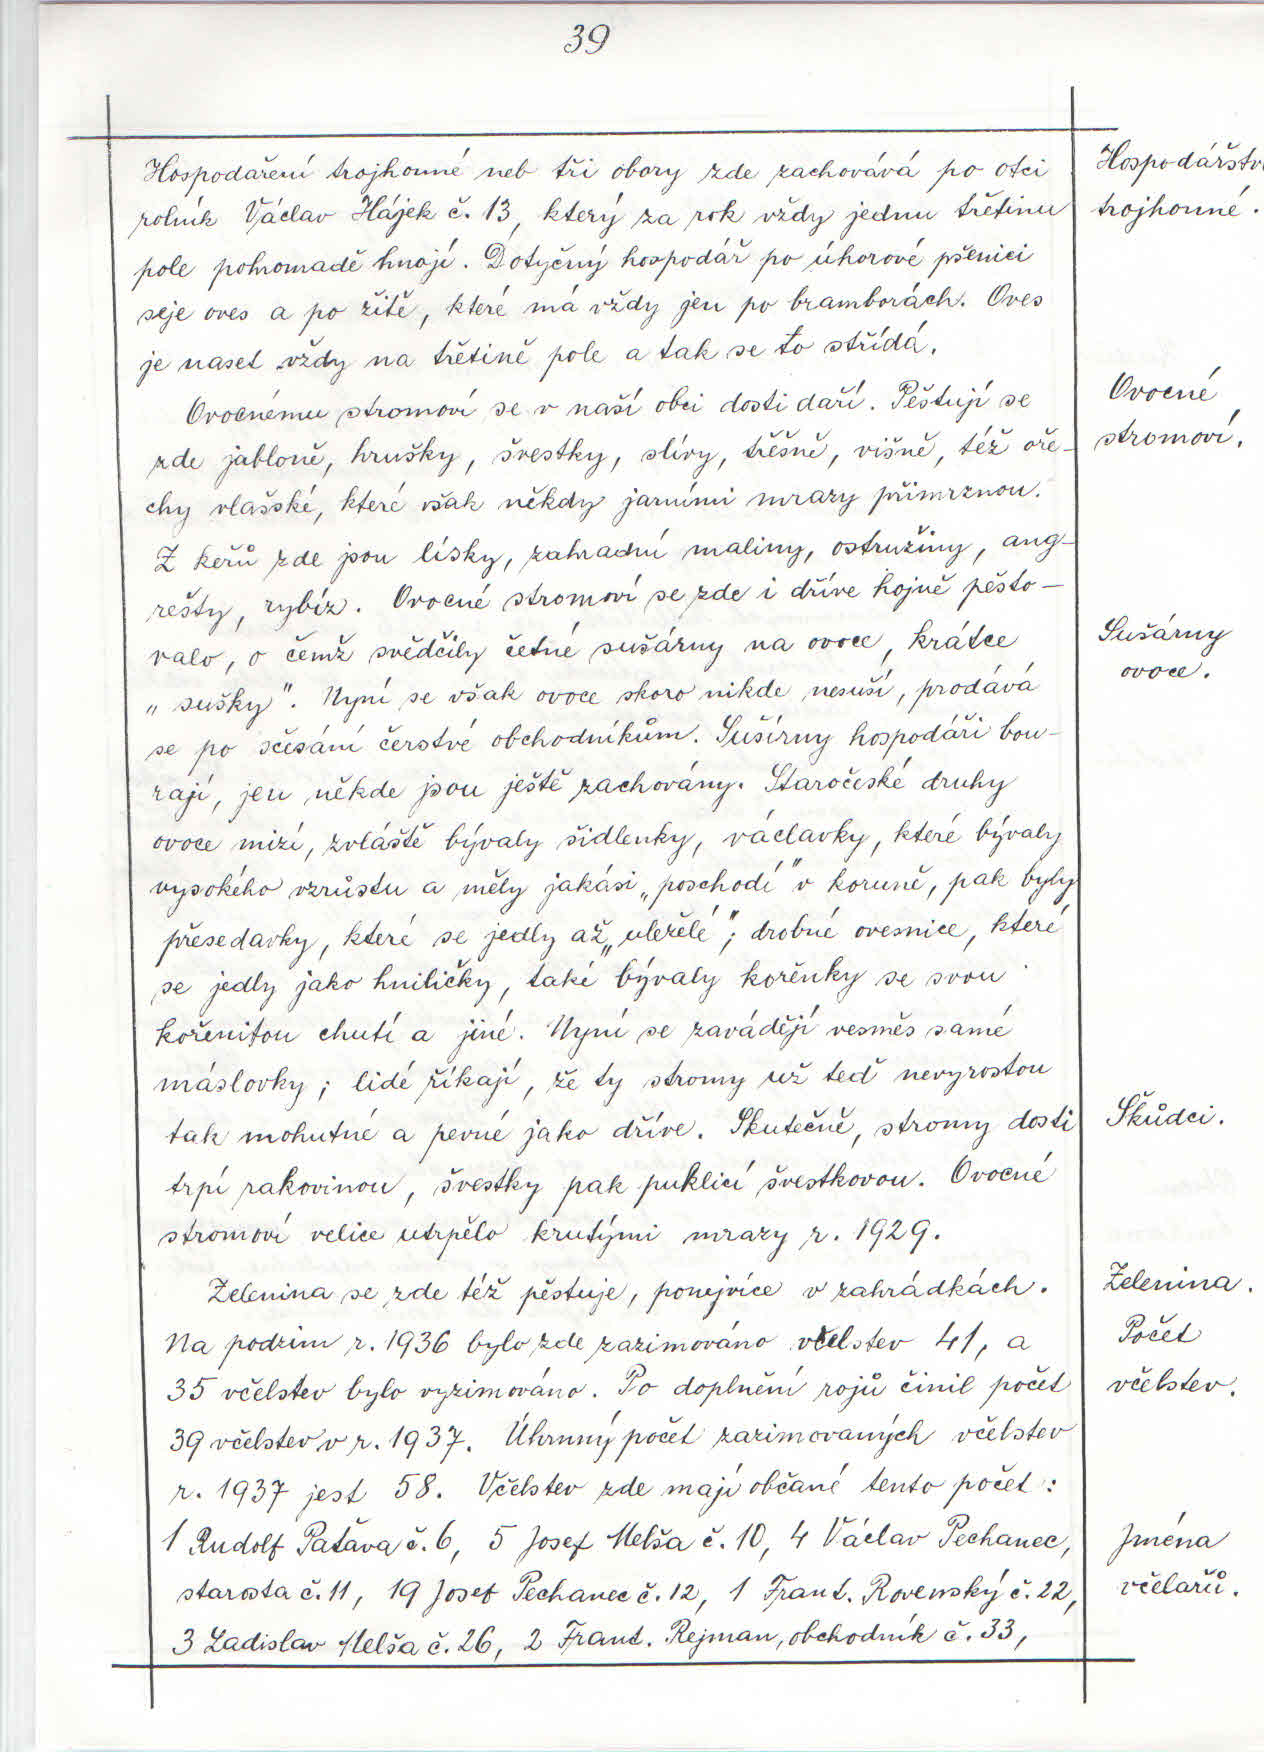 39
Hospodaření trojhonné neb tři obory zde zachovává po otci
rolník Václav Hájek č. 13, který za rok vždy jednu třetinu
pole pohromadě hnojí. Dotyčný hospodář po úhorové pšenici
seje oves a po žitě, které má vždy jen po bramborách. Oves
je naset vždy na třetině pole a tak se to střídá.
Ovocnému stromoví se v naší obci dosti daří. Pěstují se
zde jabloně, hrušky, švestky, slívy, třešně, višně, též oře-
chy vlašské, které však někdy jarními mrazy přimrznou.
Z keřů zde jsou lísky, zahradní maliny, ostružiny, ang-
rešty, rybíz. Ovocné stromoví se zde i dříve hojně pěsto-
valo, o čemž svědčily četné sušárny na ovoce, krátce
„sušky". Nyní se však ovoce skoro nikde nesuší, prodává
se po sčesání čerstvé obchodníkům. Sušírny hospodáři bou-
rají, jen někde jsou ještě zachovány. Staročeské druhy
ovoce mizí, zvláště bývaly šidlenky, václavky, které bývaly
vysokého vzrůstu a měly jakási „poschodí" v koruně, pak byly
přesedavky, které se jedly až „uležělé"; drobné ovesnice, které
se jedly jako hniličky, také bývaly kořěnky se svou
kořenitou chutí a jiné. Nyní se zavádějí vesměs samé
máslovky; lidé říkají, že ty stromy už teď nevyrostou
tak mohutné a pevné jako dříve. Skutečně, stromy dosti
trpí rakovinou, švestky pak puklicí švestkovou. Ovocné
stromoví velice utrpělo krutými mrazy r. 1929.
Zelenina se zde též pěstuje, ponejvíce v zahrádkách.
Na podzim r. 1936 bylo zde zazimováno včelstev 41, a
35 včelstev bylo vyzimováno. Po doplnění rojů činil počet
39 včelstev v r. 1937. Úhrnný počet zazimovaných včelstev
r. 1937 jest 58. Včelstev zde mají občané tento počet:
1 Rudolf Paťava č. 6, 5 Josef Melša č. 10, 4 Václav Pechanec,
starosta č. 11, 19 Josef Pechanec č. 12, 1 Frant. Rovenský č. 22,
3 Ladislav Melša č. 26, 2 Frant. Rejman, obchodník č. 33,
Hospodářství
trojhonné.
Ovocné
stromoví.
Sušárny
ovoce.
Škůdci.
Zelenina.
Počet
včelstev.
Jména
včelařů.